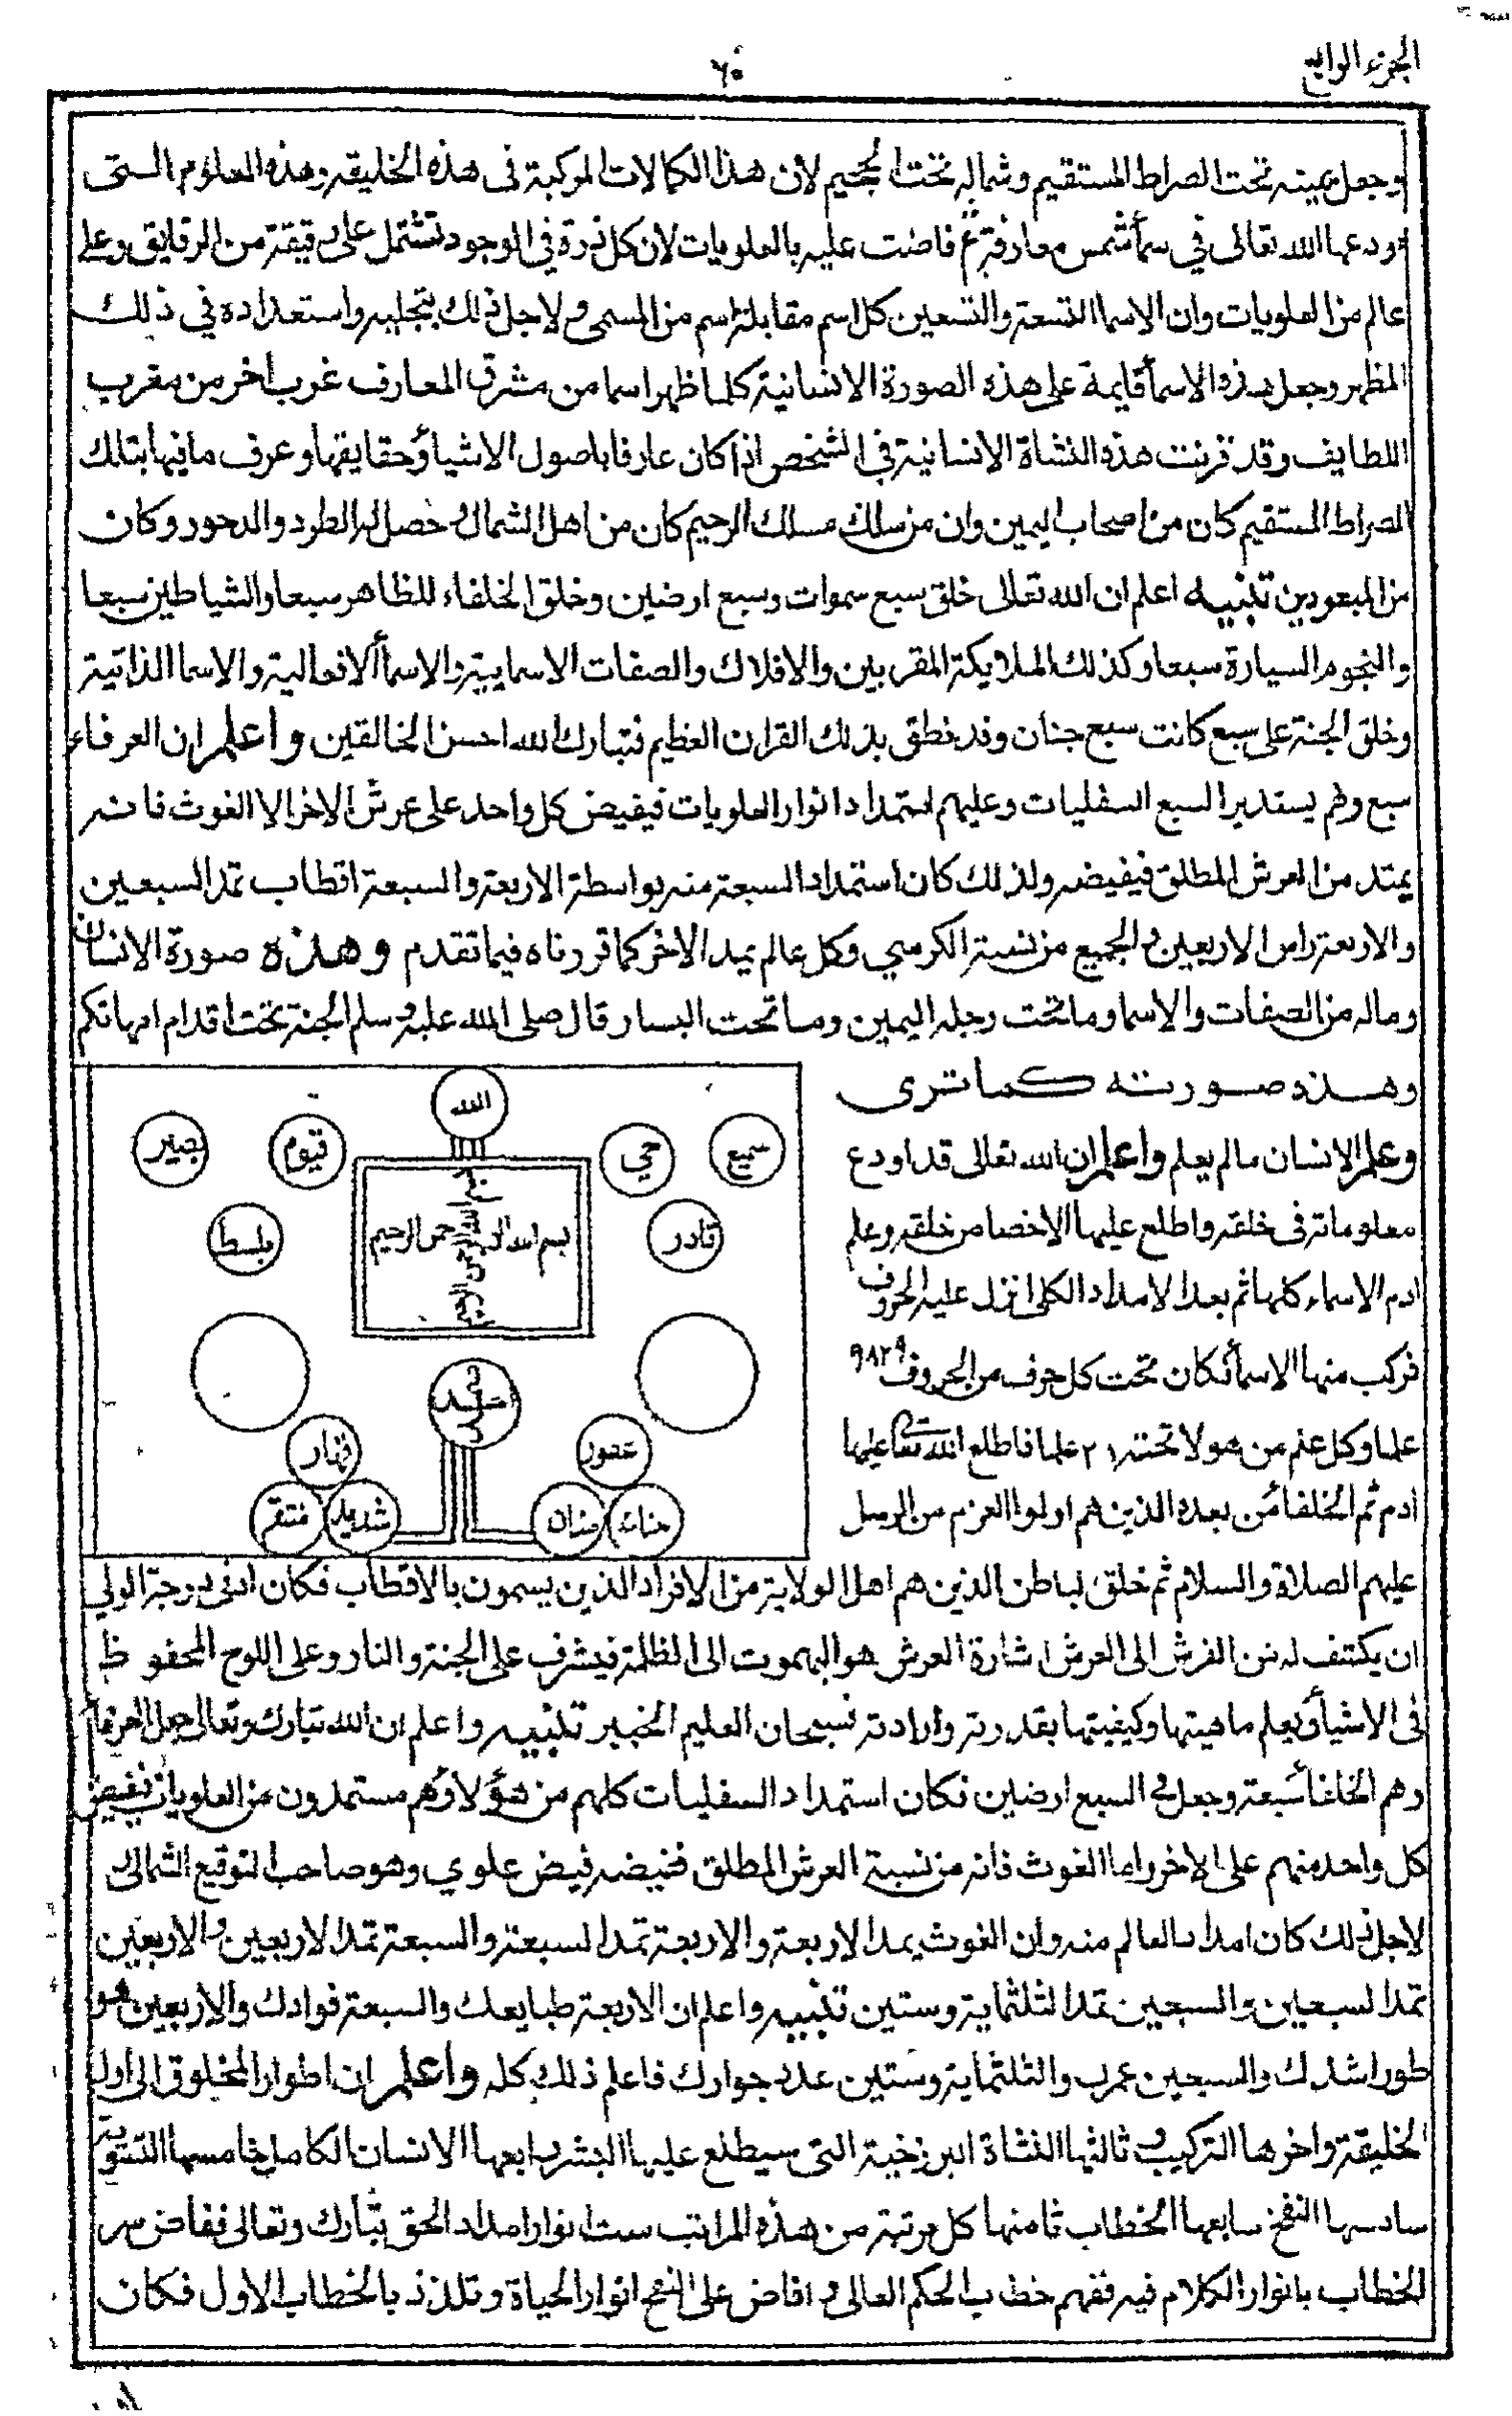 الجزء الرابع
٦٠
وجعل يمينه تحت الصراط المستقيم وشماله تحت الجحيم لان هذا الكمالات المركبة فى هذه الخليقه وهذه العلوم التى
اودعها الله تعالى في سمأ شمس معارفه ثم فاضت عليه بالعلويات لان كل ذرة في الوجود تشتمل على رقيقة من الرقايق وعلى
عالم من العلويات وان الاسما التسعة والتسعين كل اسم مقابلة اسم من المسمى ولاجل ذلك بتجليه واستعداده في ذلك
المظهر وجعل هذه الاسمأ قايمة على هذه الصورة الانسانية كلما ظهر اسما من مشرق المعارف غرب اخر من مغرب
اللطايف وقد قرنت هذه النشاة الانسانية في الشخص اذا كان عارفا باصول الاشيأ وحقايقها وعرف ما فيها بتلك
الصراط المستقيم كان من اصحاب اليمين وان من سلك مسلك الرحيم كان من اهل الشمال وحصل له الطرد والدحور وكان
من المبعودين تنبيه اعلم ان الله تعالى خلق سبع سموات وسبع ارضين وخلق الخلفاء للظاهر سبعا والشياطين سبعا
والنجوم السيارة سبعا وكذلك الملايكة المقربين والافلاك والصفات الاسمايية والاسمأ الافعالية والاسما الذاتية
وخلق الجنة على سبع كانت سبع جنان وقد نطق بذلك القران العظيم فتبارك الله احسن الخالقين واعلم ان العرفاء
سبع وهم يستديرا السبع السفليات وعليهم استمداد انوار العلويات فيفيض كل واحد على عرش الاخر الا الغوث فانه
يمتد من العرش المطلق فيفيضه ولذلك كان استمداد السبعة منه بواسطة الاربعة والسبعة اقطاب تمد السبعين
والاربعة راس الاربعين والجميع من نسبة الكرسي وكل عالم يمد الاخر كما قررناه فيما تقدم وهذه صورة الانسان
وماله من الصفات والاسما وما تحت رجله اليمين وما تحت اليسار قال صلى الله عليه وسلم الجنة تحت اقدام امهاتكم
وهذه صورته كما ترى
وعلم الانسان مالم يعلم واعلم ان الله تعالى قد اودع
معلوماته فى خلقه واطلع عليها الاخصا من خلقه وعلم
ادم الاسماء كلها ثم بعد الامداد الكلى انزل عليه الحروف
فركب منها الاسمأ فكان تحت كل حرف من الحروف ٩٨٢٩
علما وكل علم من هولا تحته ٢١ علما فاطلع الله تعالى عليها
ادم ثم الخلفأ من بعده الذين هم اولوا العزم من الرسل
الله
سميع
حي
قيوم
بصير
قادر
باسط
بسم الله الرحمن الرحيم
بسم الله الرحمن الرحيم
غفور
قهار
حنان
منان
شديد
منتقم
عليهم الصلاة والسلام ثم خلق لباطن الذين هم اهل الولاية من الافراد الذين يسمون بالاقطاب فكان ادنى درجة الولي
ان يكتنف له من الفرش الى العرش اشارة العرش هو البهموت الى الظلمة فيشرف على الجنة والنار وعلى اللوح المحفوظ
فى الاشيأ ويعلم ماهيتها وكيفيتها بقدرته وارادته فسبحان العليم الخبير تنبيه واعلم ان الله تبارك وتعالى جعل العرفأ
وهم الخلفأ سبعة وجعل في السبع ارضين فكان استمداد السفليات كلهم من هؤلاء وهم مستمدون من العلويات فيفيض
كل واحد منهم على الاخر واما الغوث فانه من نسبة العرش المطلق فيضه فيض علوي وهو صاحب التوقيع الشمالى
لاجل ذلك كان امداد العالم منه وان الغوث يمد الاربعة والاربعة تمد السبعة والسبعة تمد الاربعين والاربعين
تمد السبعين والسبعين تمد الثلثماية وستين تنبيه واعلم ان الاربعة طبايعك والسبعة فوادك والاربعين هو
طور اشدك والسبعين عمرك والثلثماية وستين عدد جوارك فاعلم ذلك كله واعلم ان اطوار المخلوق الى اول
الخليقة واخرها التركيب ثالثها النشاة البرزخية التى سيطلع عليها البشر رابعها الانسان الكامل خامسها التسوية
سادسها النفخ سابعها الخطاب ثامنها كل مرتبة من هذه المراتب ست انوار امداد الحق تبارك وتعالى ففاض سر
الخطاب بانوار الكلام فيه ففهم خطاب الحكم العالى وافاض على النفخ انوار الحياة وتلذذ بالخطاب الاول فكان